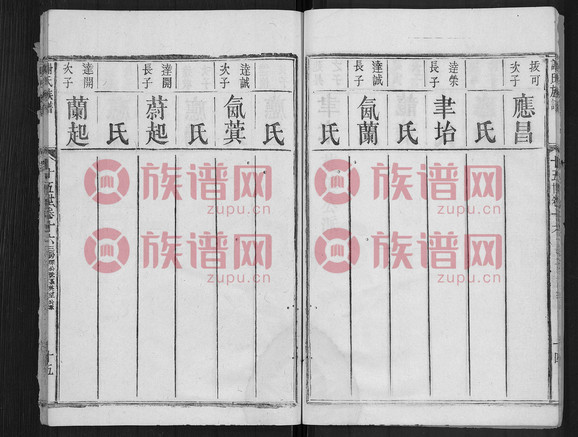 拔可次子 應昌
氏
達榮長子 聿坮
氏
達誠長子 氤蘭
聿氏
氏
達誠次子 氤蓂
氏
達開長子 蔚起
氏
達開次子 蘭起
謝氏族譜
十五世卷十六
十五
族谱网
zupu.cn
族谱网
zupu.cn
族谱网
zupu.cn
族谱网
zupu.cn